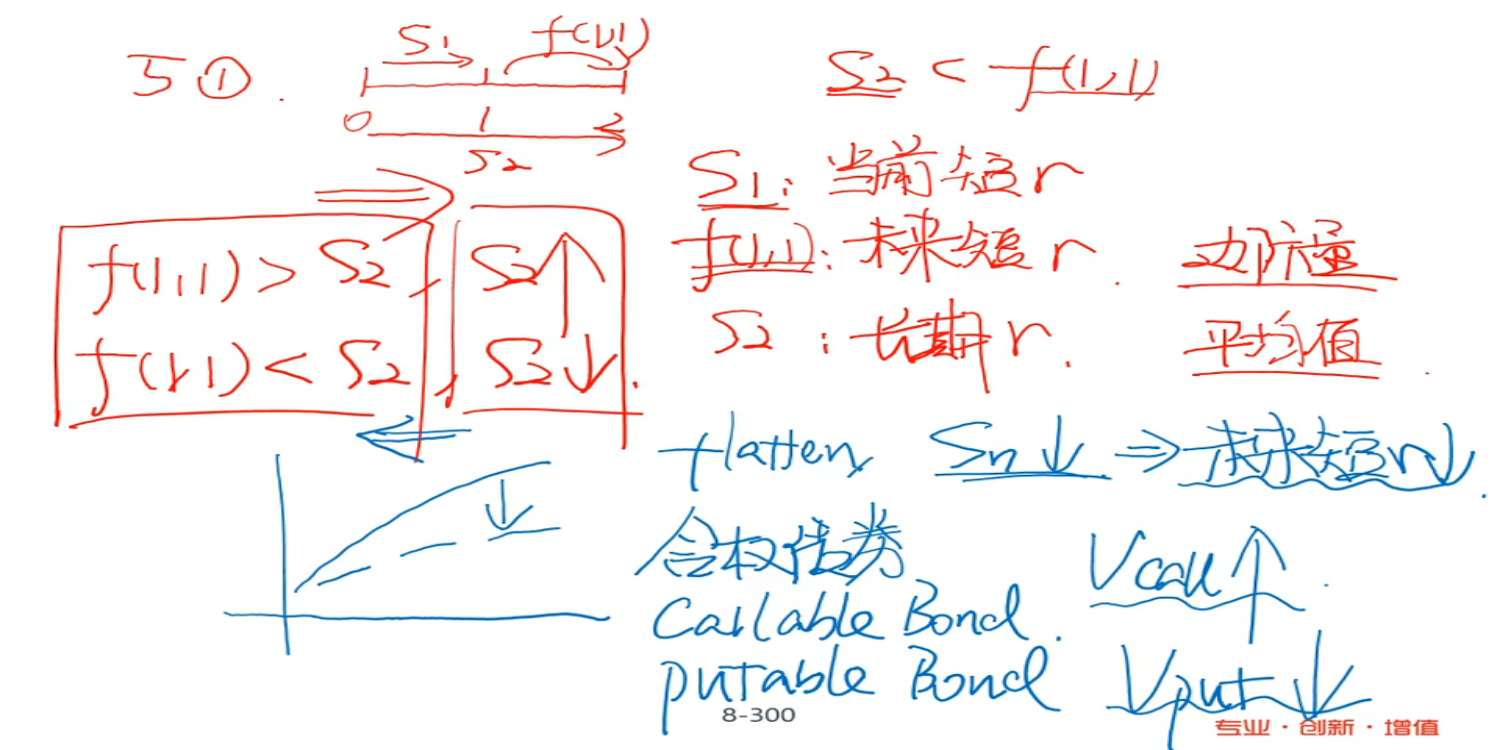 5 ①.
S1 f(1,1)
0 1 2
S2
S2 < f(1,1)
S1: 当前短r
f(1,1): 未来短r. 边际量
S2: 长期r. 平均值.
f(1,1) > S2, S2↑
f(1,1) < S2, S2↓.
flatten, Sn↓ ⇒ 未来短r↓.
含权债券
Callable Bond. Vcall↑.
putable Bond Vput↓
8-300
专业·创新·增值